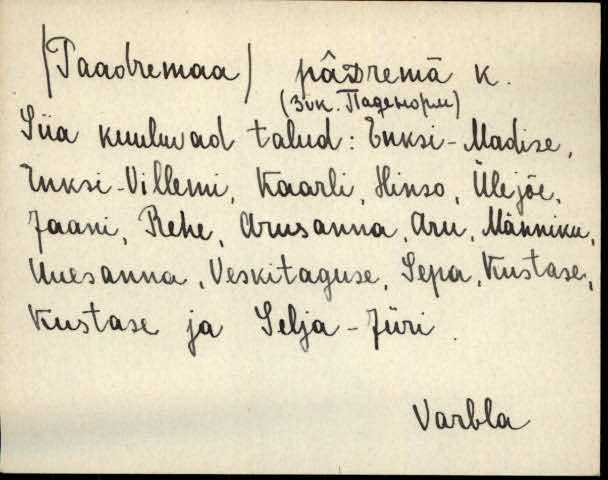 (Paadremaa) pāᴅremā k.
(Зик. Паденорм)
Siia kuuluvad talud: Enksi-Madise,
Enksi-Villemi, Kaarli, Hinso, Ülejõe,
Jaani, Rehe, Arusanna, Aru, Männiku,
Uuesanna, Veskitaguse, Sepa, Kustase,
Kustase ja Selja-Jüri.
Varbla